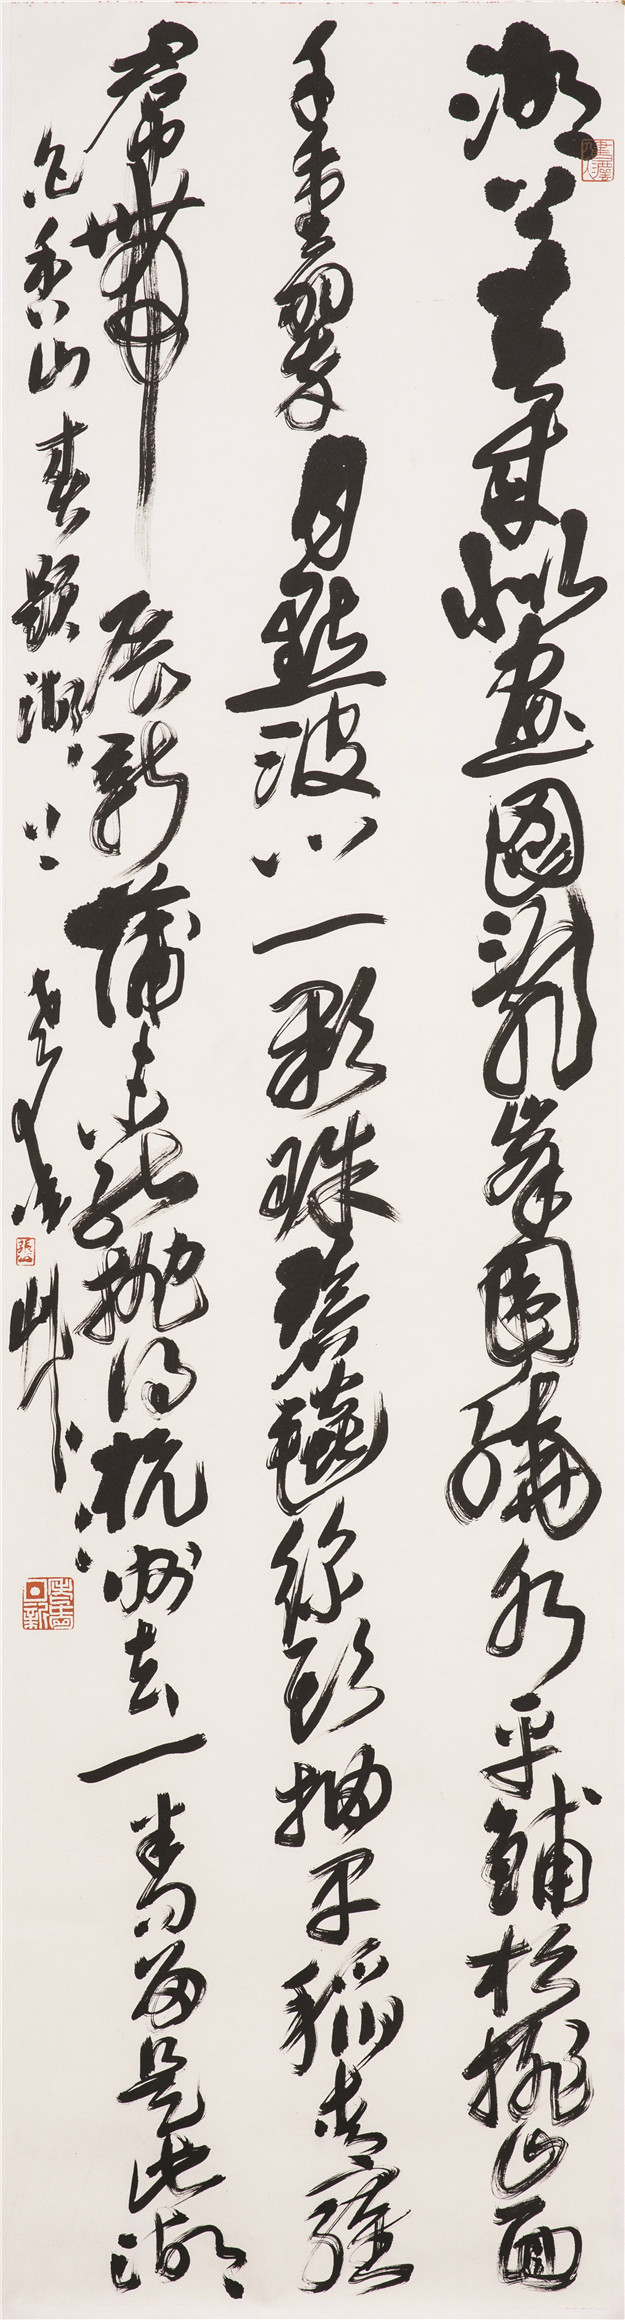 湖上春來似畫圖亂峯圍繞水平鋪松排山面
千重翠月點波心一顆珠碧毯線頭抽早稻青羅
帬帶展新蒲未能抛得杭州去一半勾留是此湖
白香山春題湖上